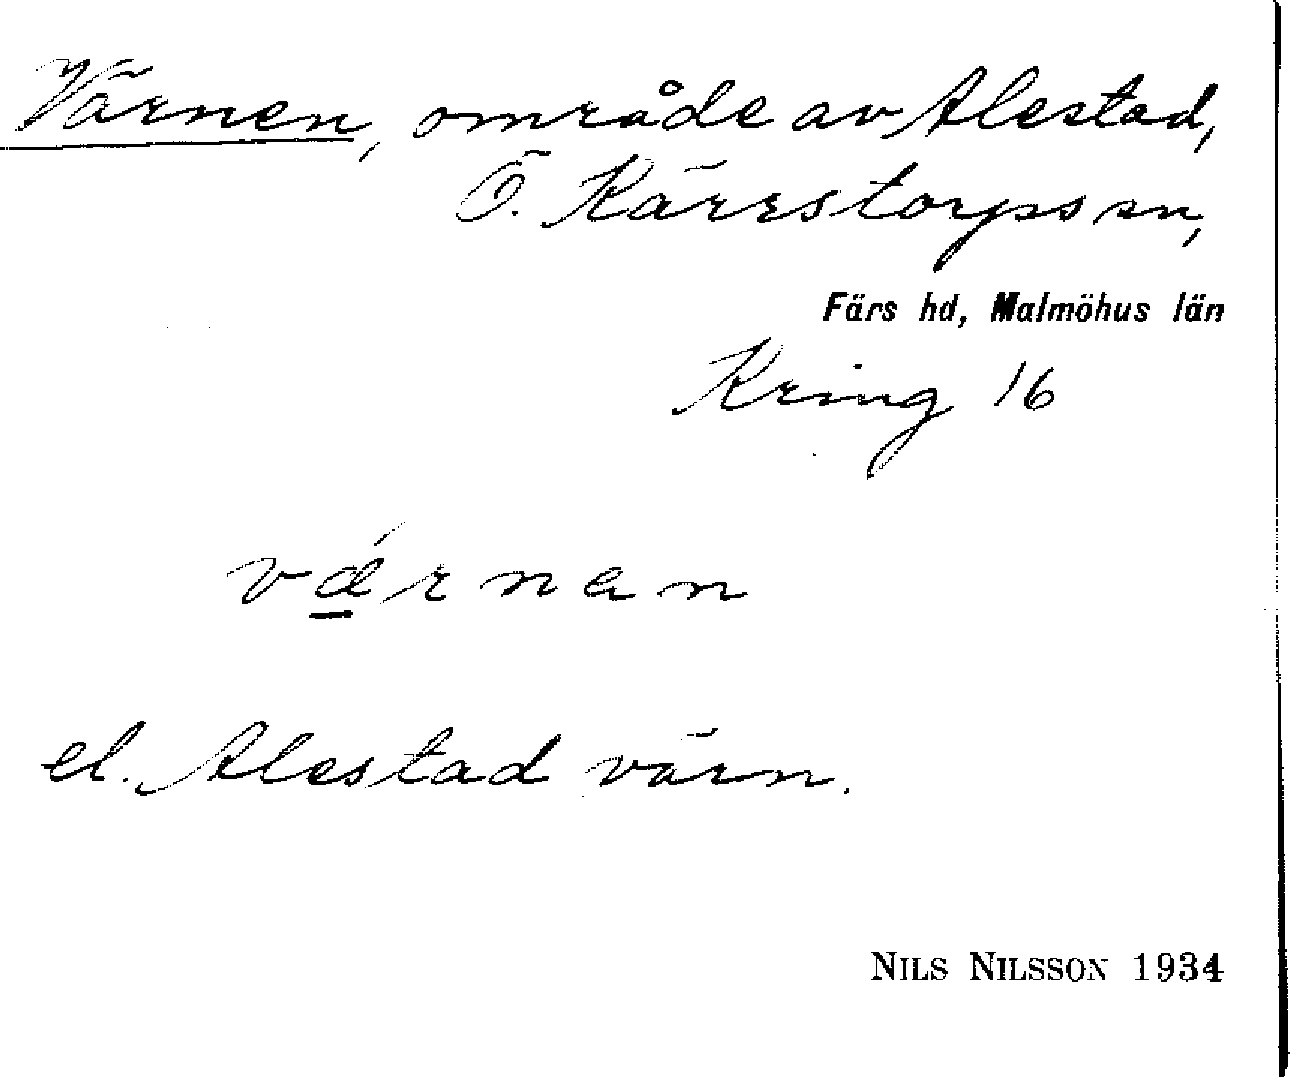 Värnen, område av Alestad,
Ö. Kärrstorps sn,
Färs hd, Malmöhus län
Kring 16
vǽrnan
el. Alestad värn.
NILS NILSSON 1934